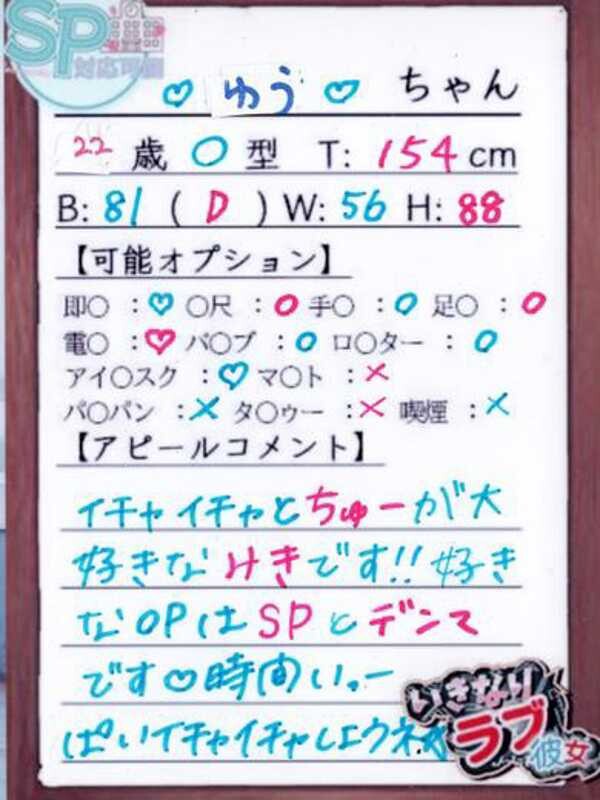 SP
対応可能
♡ ゆう ♡ ちゃん
22 歳 〇 型 T: 154 cm
B: 81 ( D ) W: 56 H: 88
【可能オプション】
即〇 :♡ 〇尺 :〇 手〇 :〇 足〇 :〇
電〇 :♡ パ〇ブ :〇 ロ〇ター :〇
アイ〇スク :♡ マ〇ト :×
パ〇パン :× タ〇ゥー :× 喫煙 :×
【アピールコメント】
イチャイチャとちゅーが大
好きなみきです!! 好き
なOPはSPとデンマ
です♡時間いっー
ぱいイチャイチャしよウネ
いきなり
ラブ彼女